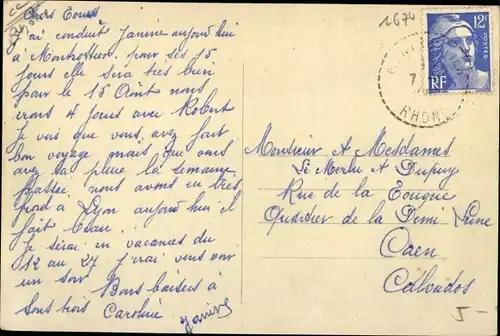 Chers Tous
J'ai conduit Janine aujourd'hui
à Montrottier pour ses 15
jours elle sera très bien
pour le 15 Août nous
irons 4 jours avec Robert
Je vois que vous avez fait
bon voyage mais que vous
avez eu pluie la semaine
passée nous avons eu très
froid à Lyon aujourd'hui il
fait beau
Je serai en vacances du
12 au 27 j'irai vous voir
un soir
Bons baisers à
tous trois Caroline
Janine
1674
12F
POSTES
RF
RHONE
Monsieur et Mesdames
Le Merlu et Dupuy
Rue de la
Quartier de la Demi Lune
Caen
Calvados
5-